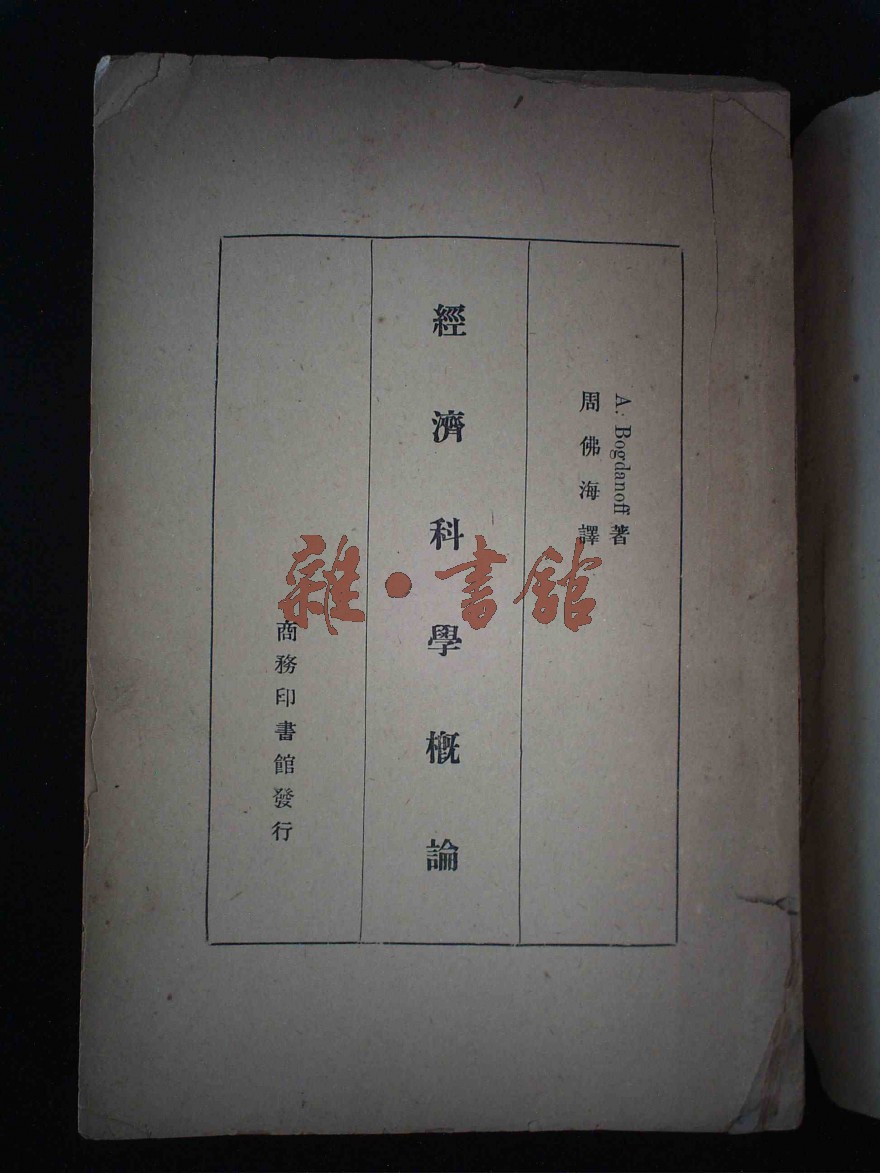 A. Bogdanoff 著
周佛海譯
經濟科學概論
商務印書館發行
雜·書館